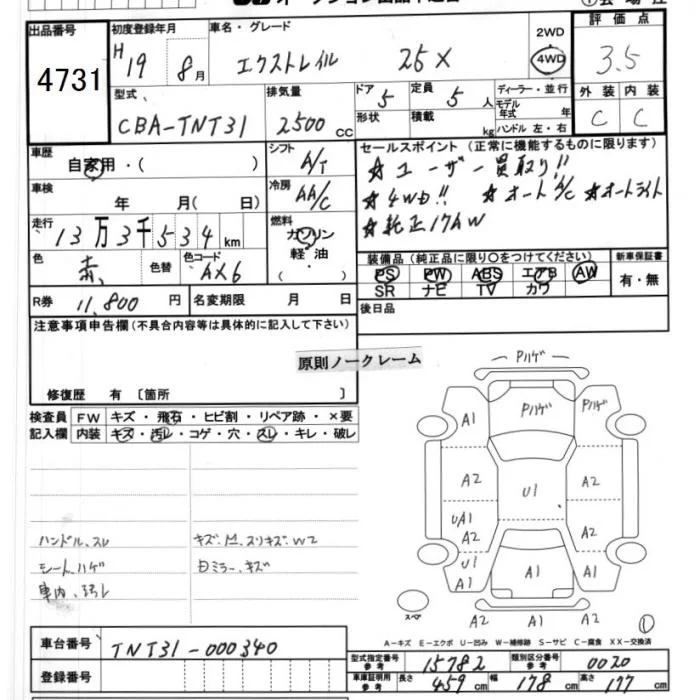 出品番号 4731
初度登録年月 H19 8月
車名・グレード エクストレイル 25X
2WD 4WD
評価点 3.5
型式 CBA-TNT31
排気量 2500 CC
ドア 5 定員 5 人
形状 積載 kg
ディーラー・並行
モデル年式 年
ハンドル 左・右
外装 内装
C C
車歴 自家用・( )
シフト A/T
セールスポイント (正常に機能するものに限ります)
★ユーザー買取り!!
★4WD!! ★オートA/C ★オートライト
★純正17AW
車検 年 月( 日)
冷房 AA/C
走行 13万3千534km
燃料 ガソリン
軽油・
( )
色 赤 色替 色コード AX6
装備品 (純正品に限り〇をつけてください)
PS PW ABS エアB AW
SR ナビ TV カワ
新車保証書
有・無
R券 11,800 円 名変期限 月 日
後日品
注意事項申告欄 (不具合内容等は具体的に記入して下さい)
原則ノークレーム
修復歴 有 〔箇所 〕
検査員 FW キズ・飛石・ヒビ割・リペア跡・×要
記入欄 内装 キズ・汚レ・コゲ・穴・スレ・キレ・破レ
ハンドル、スレ
シート、ハゲ
車内、汚レ
Pハゲ
Pハゲ Pハゲ
A1
A2 A2
U1
UA1 A2 A2
U1
A1 A1 A1
スペア
A2 A1 A2
A-キズ E-エクボ U-凹み W-補修跡 S-サビ C-腐食 XX-交換済
車台番号 TNT31-000340
登録番号
型式指定番号 参考 15782 類別区分番号 参考 0020
車庫証明用 参考 長さ 459 cm 幅 178 cm 高さ 177 cm